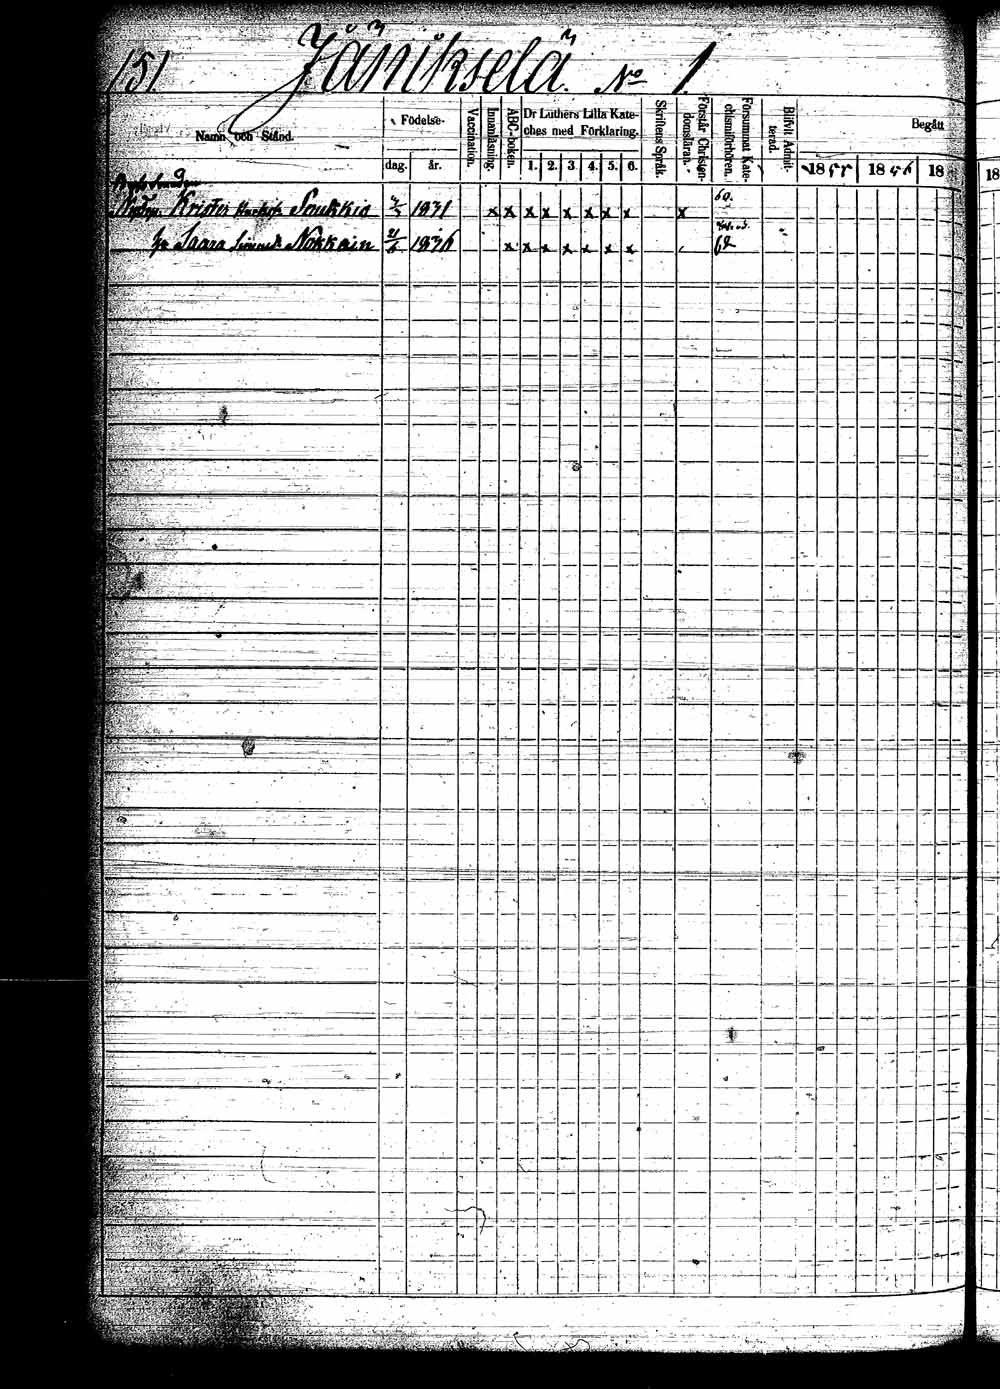 151.
Jäniksela. No 1.
Namn och Stånd.
Födelse-
dag. år.
Vaccination.
Innanläsning.
ABC-boken.
Dr Luthers Lilla Kate-
ches med Förklaring.
1. 2. 3. 4. 5. 6.
Skriftens Språk.
Förstår Christen-
domsläran.
Försummat Kate-
chismiförhören.
Blifvit Admit-
terad.
Begått
1855 1856 18
18
Krister Soukkio 1831 x x x x x x x x x 60.
Saara Nokkain 21/6 1836 x x x x x x x 62